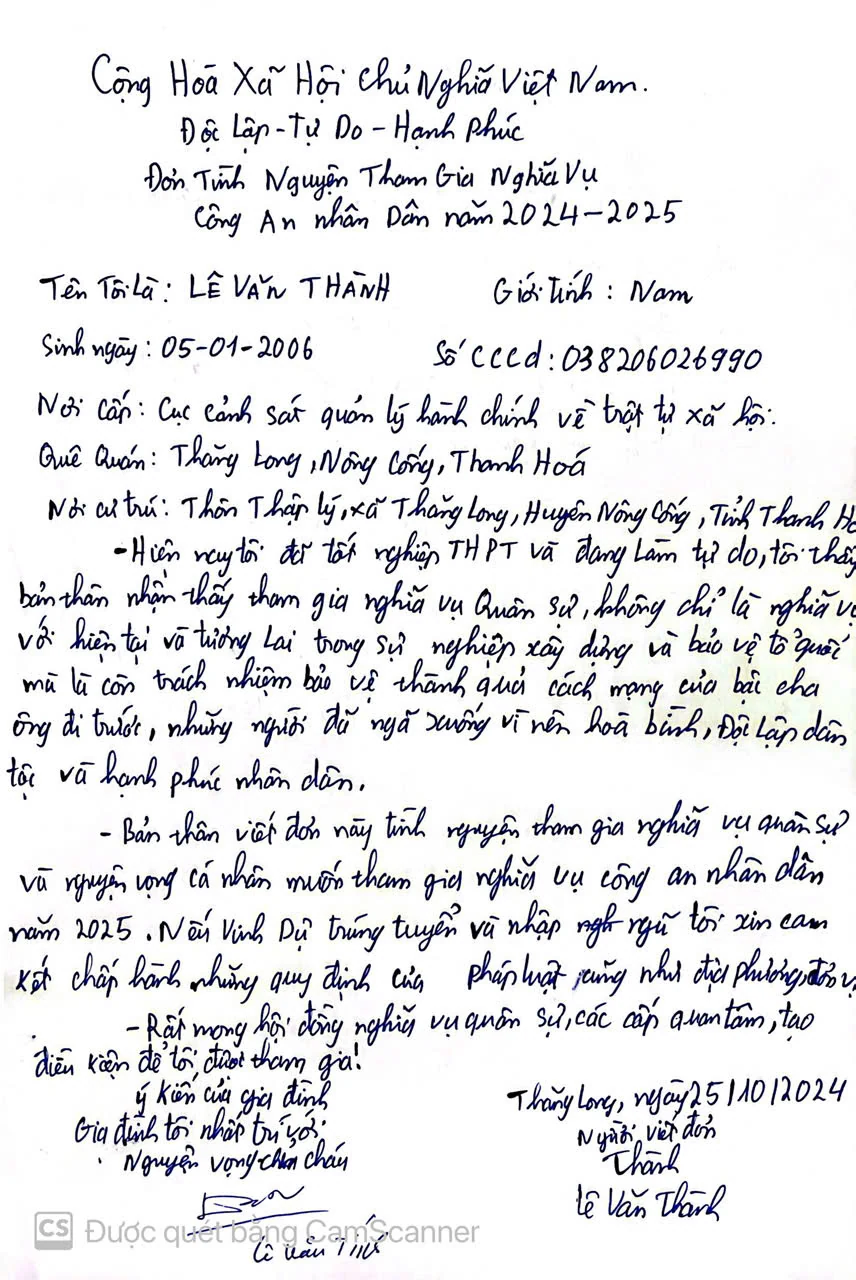 Cộng Hoà Xã Hội Chủ Nghĩa Việt Nam.
Độc Lập - Tự Do - Hạnh Phúc
Đơn Tình Nguyện Tham Gia Nghĩa Vụ
Công An nhân Dân năm 2024-2025
Tên Tôi Là: LÊ VĂN THÀNH Giới tính: Nam
Sinh ngày: 05-01-2006 Số CCCd: 038206026990
Nơi Cấp: Cục cảnh sát quản lý hành chính về trật tự xã hội.
Quê Quán: Thăng Long, Nông Cống, Thanh Hoá
Nơi cư trú: Thôn Thập lý, xã Thăng Long, Huyện Nông Cống, Tỉnh Thanh Ho
- Hiện nay tôi đã tốt nghiệp THPT và đang Làm tự do, tôi thấy
bản thân nhận thấy tham gia nghĩa vụ Quân sự, không chỉ là nghĩa vụ
với hiện tại và tương Lai trong sự nghiệp xây dựng và bảo vệ tổ quốc
mà là còn trách nhiệm bảo vệ thành quả cách mạng của bậc cha
ông đi trước, những người đã ngã xuống vì nền hoà bình, Độc Lập dân
tộc và hạnh phúc nhân dân.
- Bản thân viết đơn này tình nguyện tham gia nghĩa vụ quân sự
và nguyện vọng cá nhân muốn tham gia nghĩa vụ công an nhân dân
năm 2025. Nếu Vinh Dự trúng tuyển và nhập ngũ tôi xin cam
kết chấp hành những quy định của pháp luật, cũng như địa phương, đơn vị
- Rất mong hội đồng nghĩa vụ quân sự, các cấp quan tâm, tạo
điều kiện để tôi được tham gia!
ý kiến của gia đình
Gia đình tôi nhất trí với
nguyện vọng của cháu
Lê Văn
Thăng Long, ngày 25/10/2024
Người viết đơn
Thành
Lê Văn Thành
CS Được quét bằng CamScanner